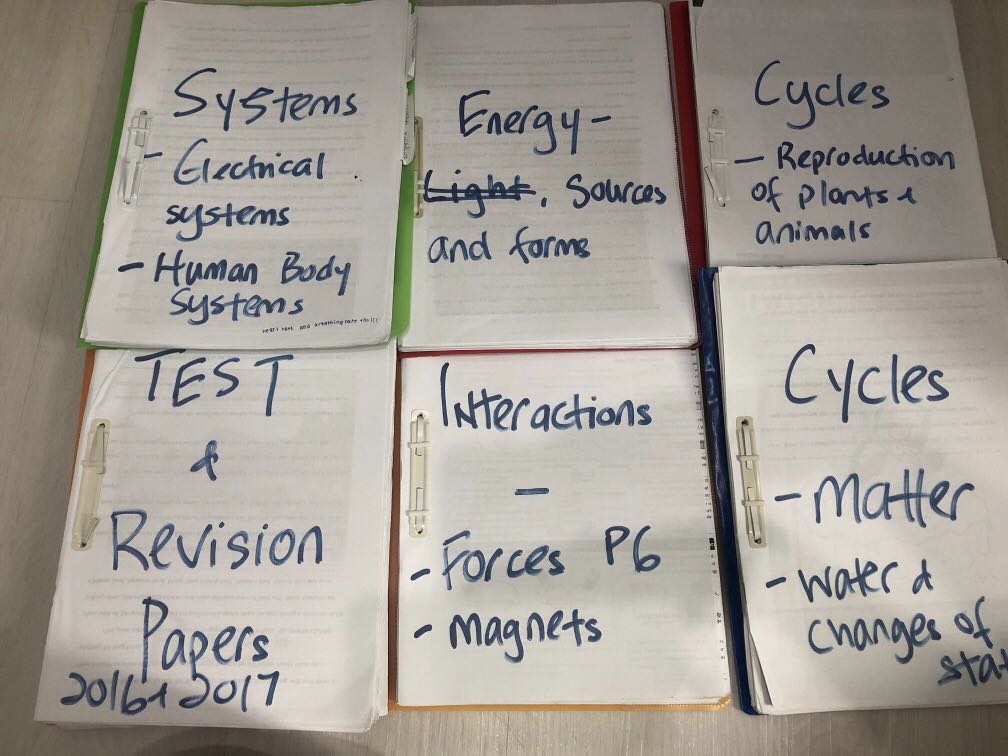 Systems
- Electrical
systems
- Human Body
Systems
heart rate and breathing rate too!!!
Energy -
Light, Sources
and forms
Cycles
- Reproduction
of plants &
animals
TEST
&
Revision
Papers
2016 & 2017
Interactions
-
- Forces P6
- Magnets
Cycles
- Matter
- Water &
changes of
stat